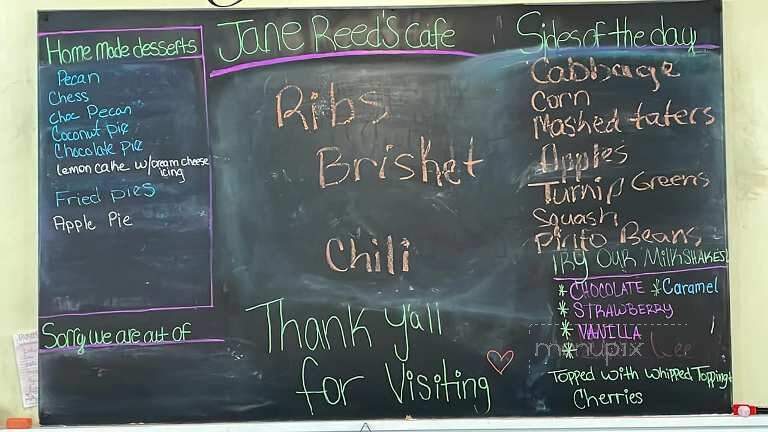 Home Made desserts
Pecan
Chess
choc Pecan
Coconut Pie
Chocolate Pie
Lemon cake w/cream cheese
icing
Fried pies
Apple Pie
Sorry we are out of
Jane Reed's Cafe
Ribs
Brisket
Chili
Thank Y'all
for Visiting
Sides of the day
Cabbage
Corn
Mashed taters
Apples
Turnip Greens
Squash
Pinto Beans
TRY OUR MILKSHAKES!
* CHOCOLATE * Caramel
* STRAWBERRY
* VANILLA
*
menupix
Topped with whipped Topping +
Cherries